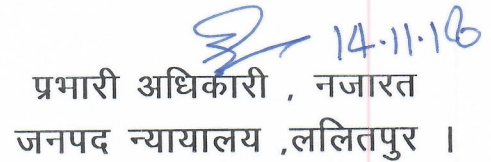 14.11.18
प्रभारी अधिकारी , नजारत
जनपद न्यायालय ,ललितपुर ।